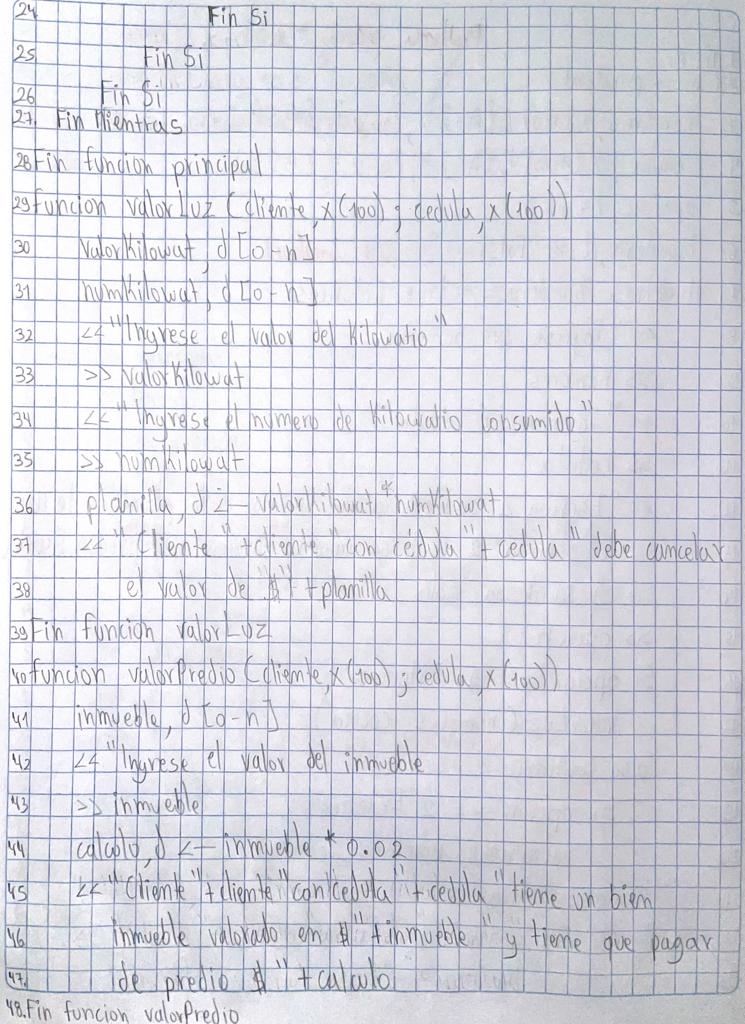 24 Fin Si
25 Fin Si
26 Fin Si
27. Fin Mientras
28 Fin funcion principal
29 funcion valorLuz (cliente, x(100) ; cedula, x(100))
30 valorKilowat, d [0-n]
31 numkilowat, d [0-n]
32 << "Ingrese el valor del Kilowatio"
33 >> valorKilowat
34 << "Ingrese el numero de Kilowatio consumido"
35 >> numkilowat
36 planilla, d <- valorKilowat * numKilowat
37 << "Cliente" + cliente "con cédula" + cedula "debe cancelar
38 el valor de $" + planilla
39 Fin funcion valorLuz
40 funcion valorPredio (cliente, x(100) ; cedula, x(100))
41 inmueble, d [0-n]
42 << "Ingrese el valor del inmueble
43 >> inmueble
44 calculo, d <- inmueble * 0.02
45 << "Cliente" + cliente "con cedula" + cedula "tiene un bien
46 inmueble valorado en $" + inmueble "y tiene que pagar
47. de predio $" + calculo
48. Fin funcion valorPredio